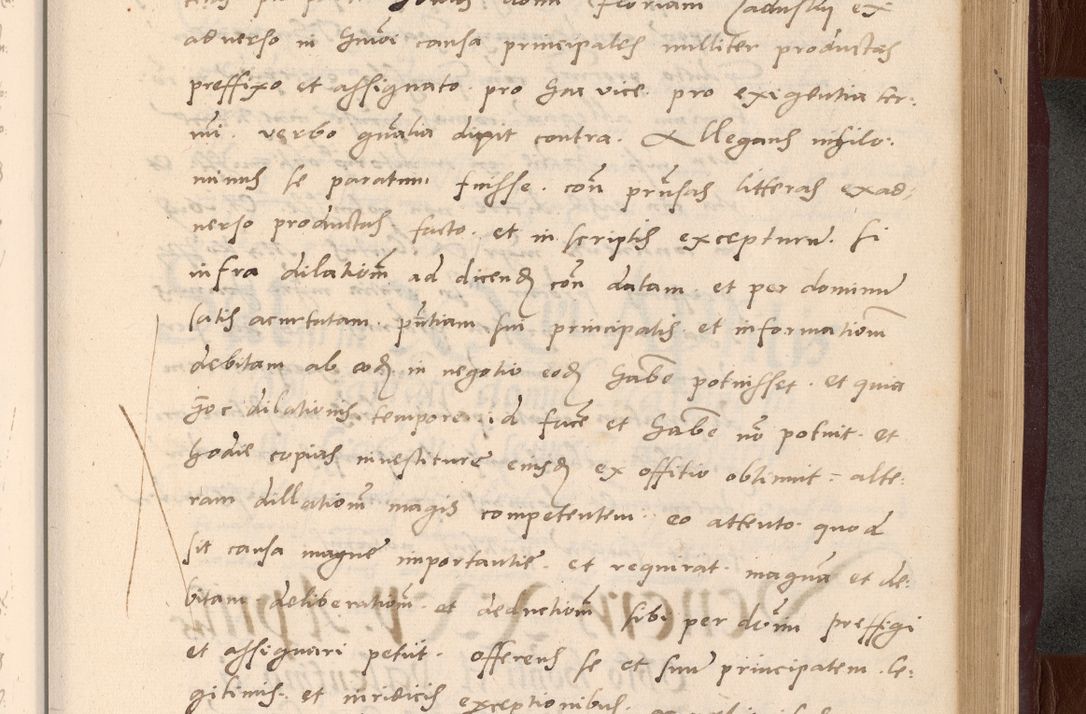 adverso in huiusmodi causa principales nulliter productas
preffixo et assignato pro hac vice pro exigentia ter:
mi. verbo gnalia dixit contra. Allegans nihilo:
minus se paratum fuisse con prnsas litteras exad:
verso productas facto et in scriptis excepturum. si
infra dilationem ad dicend con datam et per dominum
satis acurtatam pntiam sui principalis et informationem
debitam ab eod in negotio eod habere potuisset. et quia
hoc dilationis tempore id facere et habere non potuit. et
hodie copias investiture eiusd ex offitio obtinuit = alte:
ram dillationem magis competentem eo attento quod
sit causa magne importantie et requirat magnam et de:
bitam deliberationem et deductionem sibi per dominum preffigi
et assignari petiit. offerens se et suum principatem le:
gitimis et iuridicis exceptionibus